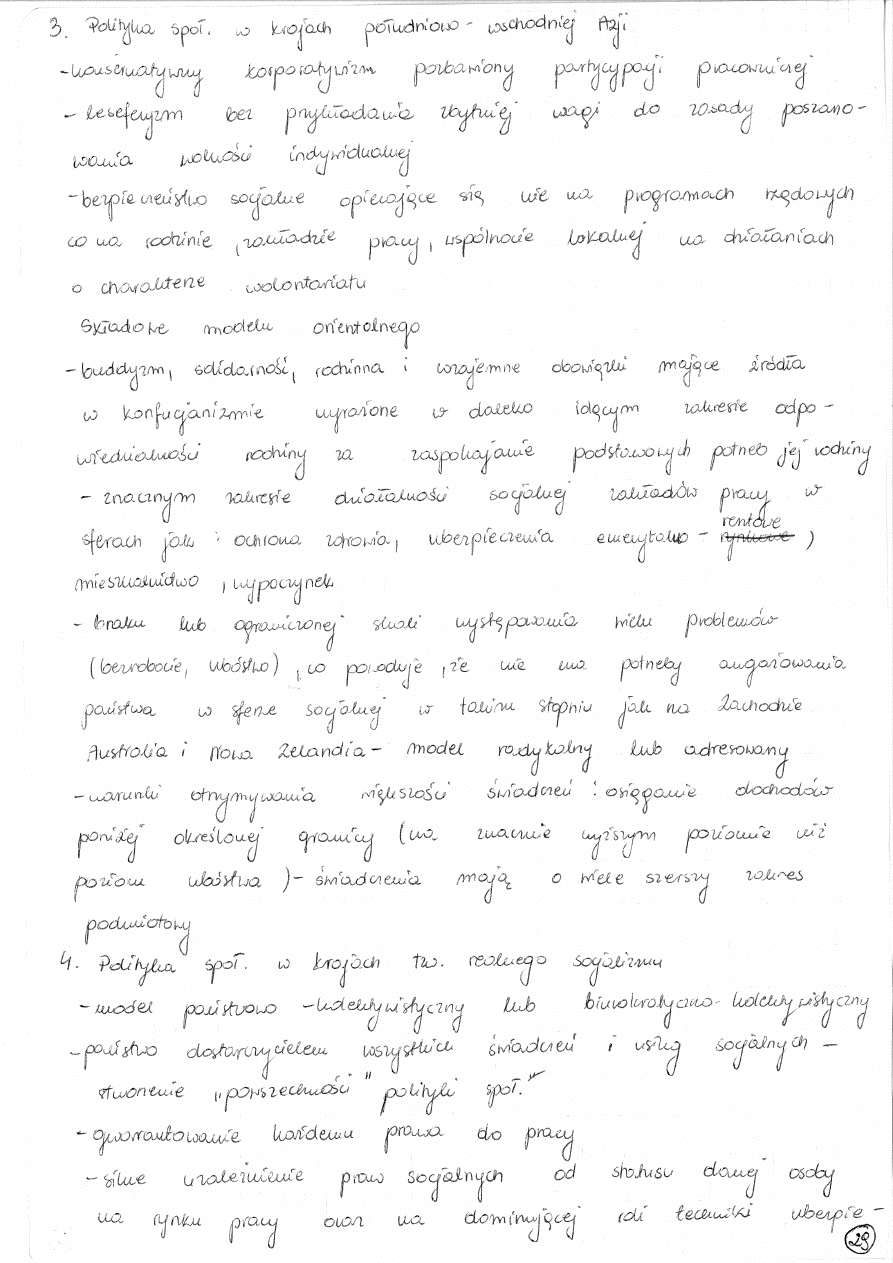 3. Polityka społ. w krajach południowo - wschodniej Azji
- konserwatywny korporatywizm pozbawiony partycypacji pracowniczej
- leseferyzm bez przykładania zbytniej wagi do zasady poszano-
wania wolności indywidualnej
- bezpieczeństwo socjalne opierające się nie na programach rządowych
co na rodzinie, zakładzie pracy, wspólnocie lokalnej na działaniach
o charakterze wolontariatu
Składowe modelu orientalnego
- buddyzm, solidarność, rodzinna i wzajemne obowiązki mające źródła
w konfucjanizmie wyrażone w daleko idącym zakresie odpo -
wiedzialności rodziny za zaspokajanie podstawowych potrzeb jej rodziny
- znacznym zakresie działalności socjalnej zakładów pracy w
sferach jak : ochrona zdrowia, ubezpieczenia emerytalno - rentowe )
mieszkalnictwo, wypoczynek
- braku lub ograniczonej skali występowania wielu problemów
(bezrobocie, ubóstwo), co powoduje, że nie ma potrzeby angażowania
państwa w sferze socjalnej w takim stopniu jak na Zachodzie
Australia i Nowa Zelandia - model radykalny lub adresowany
- warunki otrzymywania większości świadczeń : osiąganie dochodów
poniżej określonej granicy (na znacznie wyższym poziomie niż
poziom ubóstwa ) - świadczenia mają o wiele szerszy zakres
podmiotowy
4. Polityka społ. w krajach tzw. realnego socjalizmu
- model państwowo - kolektywistyczny lub biurokratyczno - kolektywistyczny
- państwo dostarczycielem wszystkich świadczeń i usług socjalnych -
stworzenie „powszechności" polityki społ."
- gwarantowanie każdemu prawa do pracy
- silne uzależnienie praw socjalnych od statusu danej osoby
na rynku pracy oraz na dominującej roli techniki ubezpie -
29